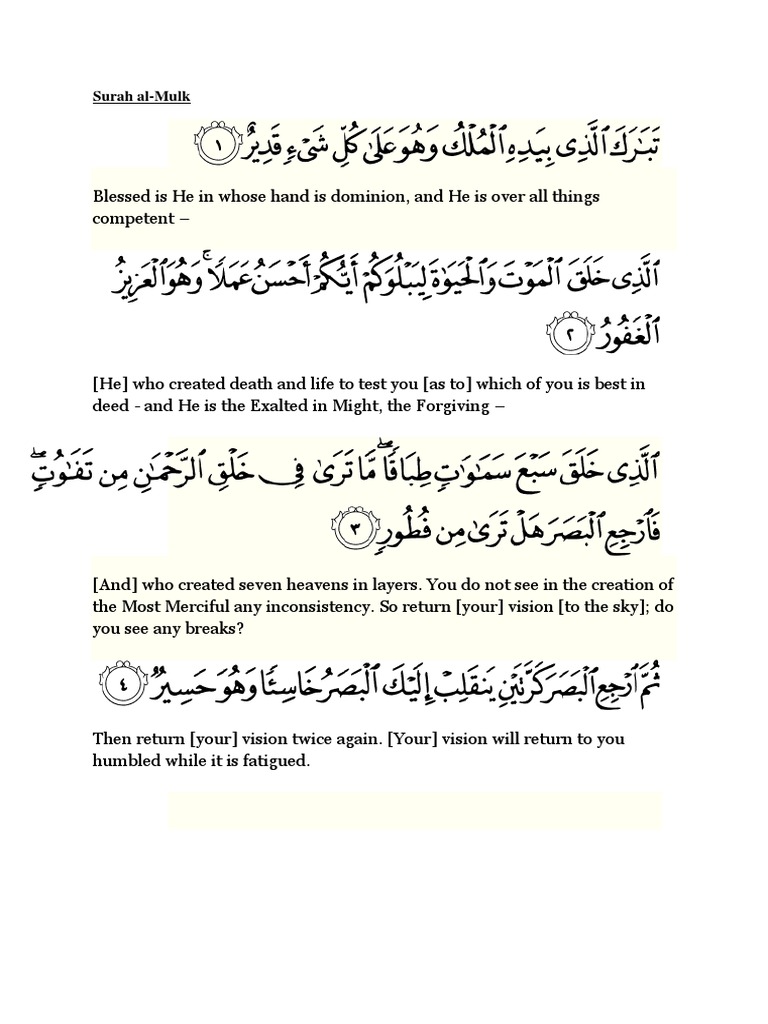 Surah al-Mulk
تَبَـٰرَكَ ٱلَّذِى بِيَدِهِ ٱلْمُلْكُ وَهُوَ عَلَىٰ كُلِّ شَىْءٍ قَدِيرٌ ١
Blessed is He in whose hand is dominion, and He is over all things
competent –
ٱلَّذِى خَلَقَ ٱلْمَوْتَ وَٱلْحَيَوٰةَ لِيَبْلُوَكُمْ أَيُّكُمْ أَحْسَنُ عَمَلًا ۚ وَهُوَ ٱلْعَزِيزُ
ٱلْغَفُورُ ٢
[He] who created death and life to test you [as to] which of you is best in
deed - and He is the Exalted in Might, the Forgiving –
ٱلَّذِى خَلَقَ سَبْعَ سَمَـٰوَٰتٍ طِبَاقًا ۖ مَّا تَرَىٰ فِى خَلْقِ ٱلرَّحْمَـٰنِ مِن تَفَـٰوُتٍ ۖ
فَٱرْجِعِ ٱلْبَصَرَ هَلْ تَرَىٰ مِن فُطُورٍ ٣
[And] who created seven heavens in layers. You do not see in the creation of
the Most Merciful any inconsistency. So return [your] vision [to the sky]; do
you see any breaks?
ثُمَّ ٱرْجِعِ ٱلْبَصَرَ كَرَّتَيْنِ يَنقَلِبْ إِلَيْكَ ٱلْبَصَرُ خَاسِئًا وَهُوَ حَسِيرٌ ٤
Then return [your] vision twice again. [Your] vision will return to you
humbled while it is fatigued.